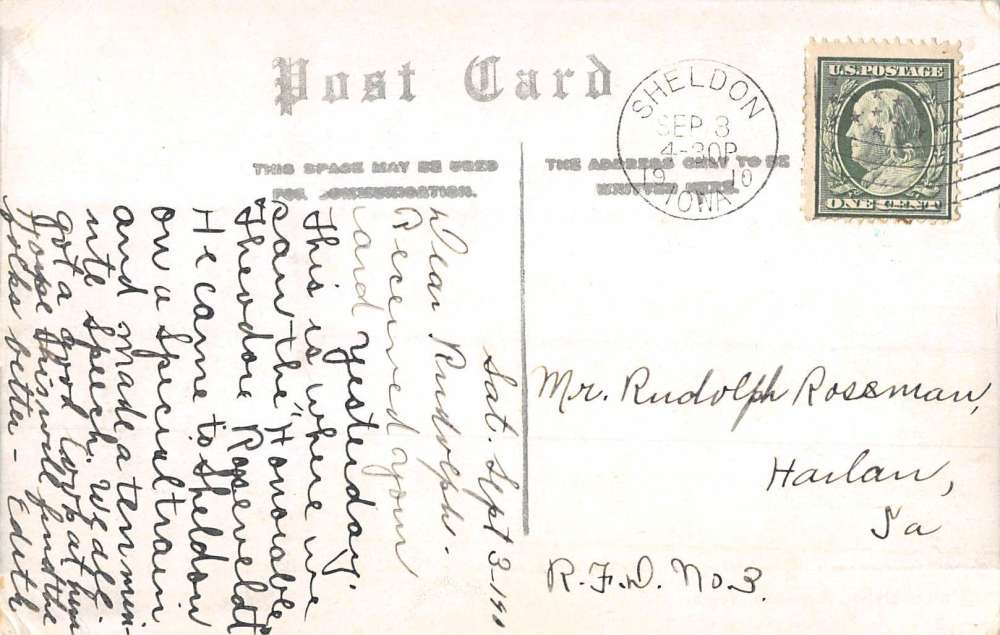 Post Card
THIS SPACE MAY BE USED
FOR COMMUNICATION.
THE ADDRESS ONLY TO BE
WRITTEN HERE.
SHELDON
SEP 3
4-30P
19 10
IOWA
U.S. POSTAGE
ONE CENT
Sat. Sept 3-191
Dear Rudolph.
Received your
card yesterday.
This is where we
saw the "Honorable
Theodore Roosevelt
He came to Sheldon
on a special train
and made a ten min-
ute speech. We all
got a good look at him
Hope this will find the
folks better - Edith
Mr. Rudolph Rossman,
Harlan,
Ia
R.F.D. No. 3.